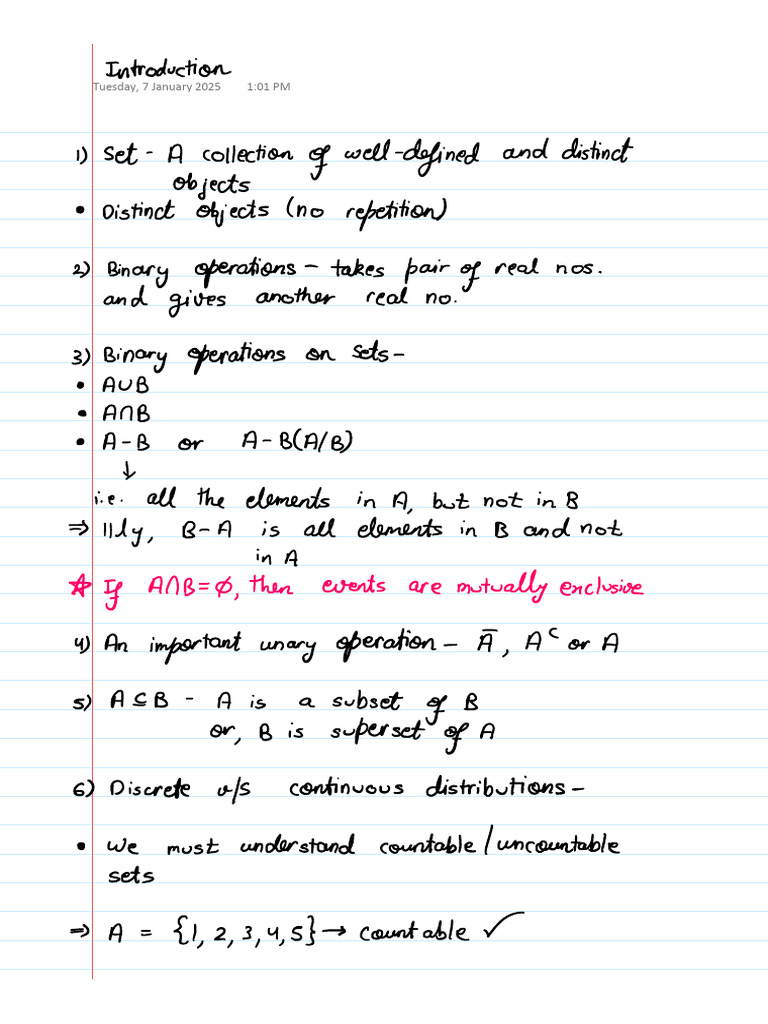 Introduction
Tuesday, 7 January 2025 1:01 PM
1) Set - A collection of well-defined and distinct
objects
• Distinct objects (no repetition)
2) Binary operations - takes pair of real nos.
and gives another real no.
3) Binary operations on sets -
• A∪B
• A∩B
• A-B or A-B(A/B)
↓
i.e. all the elements in A, but not in B
⇒ ||ly, B-A is all elements in B and not
in A
☆ If A∩B=∅, then events are mutually exclusive
4) An important unary operation - Ā, Aᶜ or A
5) A⊆B - A is a subset of B
or, B is superset of A
6) Discrete v/s continuous distributions -
• We must understand countable/uncountable
sets
⇒ A = {1, 2, 3, 4, 5} → countable ✓